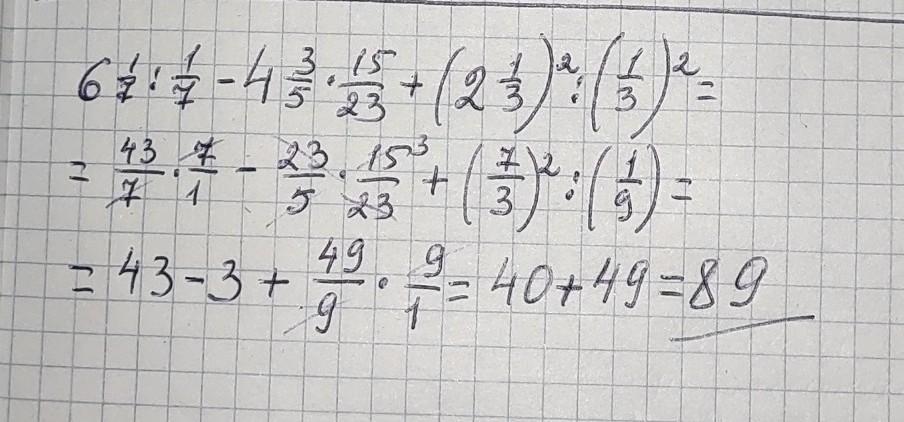 6 1/7 : 1/7 - 4 3/5 · 15/23 + (2 1/3)² : (1/3)² =
= 43/7 · 7/1 - 23/5 · 15³/23 + (7/3)² : (1/9) =
= 43 - 3 + 49/9 · 9/1 = 40 + 49 = 89